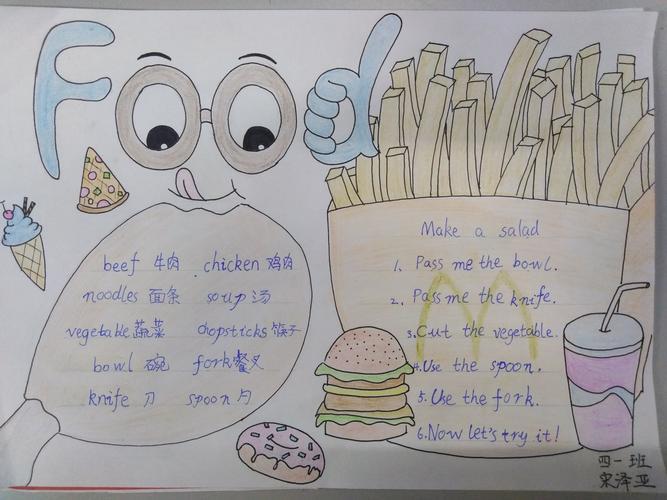 Food
beef 牛肉 chicken 鸡肉
noodles 面条 soup 汤
vegetable 蔬菜 chopsticks 筷子
bowl 碗 fork 餐叉
knife 刀 spoon 勺
Make a salad
1. Pass me the bowl.
2. Pass me the knife.
3. Cut the vegetable.
4. Use the spoon.
5. Use the fork.
6. Now let's try it!
四一班
宋泽亚